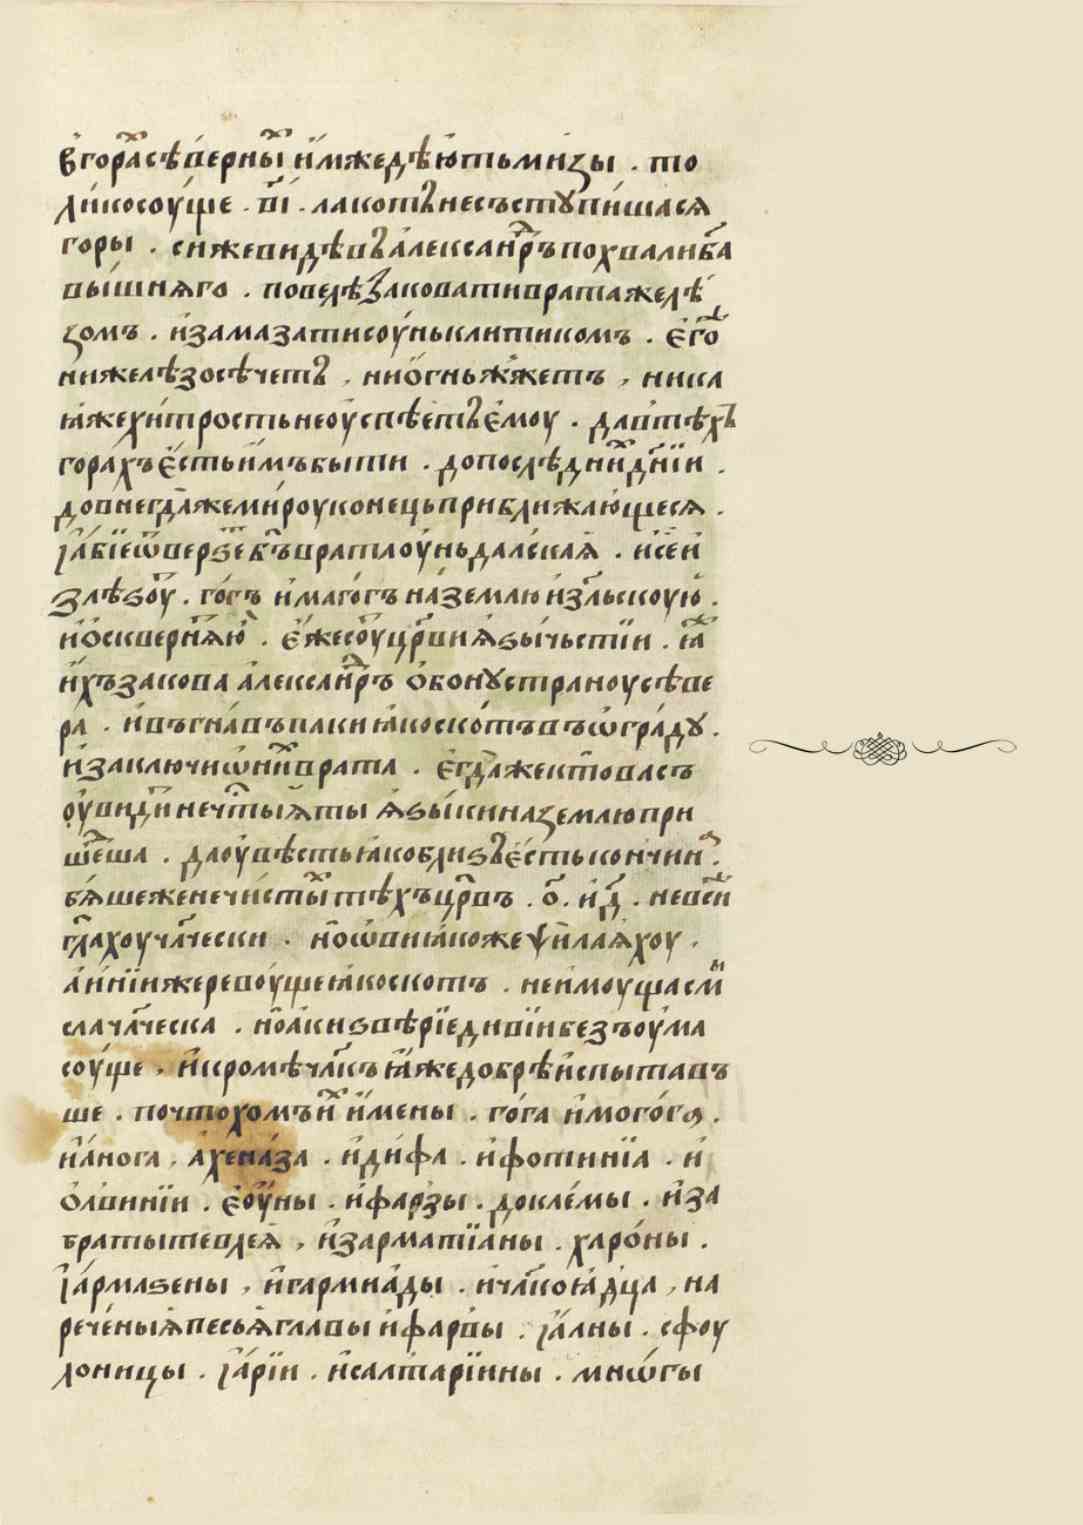 вгора̑сѣверны̑ и҆мжедѣю҆тьмнзы . то
ли́косоу́ще . в҃і . лакотⸯнесъстꙋпи́шася
горы . снжевндѣвⸯа҆лексан̾дръпохвалиб҃а
вы́шняго . повелѣзаковативратажелѣ
зомъ . и҆замазатисоу́нькли́тикомъ . є҆го̑
нижелѣзосѣчетⸯ , ниѻ҆гньжже́тъ , ника
ꙗ҆жехи́тростьнеоу҆спѣетⸯє҆моу . давтѣхъ
гора́хъє҆стьи҆мъбыти . допослѣдни̑д҃нїи .
довнегда̀жеми́роуконе́цьприближаю́щеся .
і҆а҆́бїеѿверѕеб҃ъвратаоу́ньдалска́ꙗ . и҆сєи҆
злѣѕоу̑ . го́гъ и҆маго́гъ на́землю и҆з҃льскоую̀ .
и҆ѡ҆скверня́ю̑ . є҆́жесоу̑цр҃виꙗ҆ѕы́чьстїи . ꙗ҆̑
и҆хъзакова а҆лексан̾дръ ѻ҆бонꙋстраноусѣве
ра . и҆въгна́въпакиꙗ҆коско́тъвъѡ҆гра́дꙋ .
и҆заключиѡни̑врата . є҆гда̀жектовасъ
оу҆види̑нечⷭ҇тыꙗ҆ты ꙗ҆ѕы́киназемлюпри
ше̑ша . даоу҆вѣстьꙗ҆коблиѕⸯє҆стькончинⷶ .
бя́шеженечи́сты̑тѣхъцр҃въ . о҃ . и҆д҃ . невси̑
гл҃ахоучл҃чески . но̑ѡвиꙗ҆́коже ѱи҆лая́хоу .
а҆ни́їижеревоу́щеꙗ҆коскотъ . неи҆моущасмⷨы
слачл҃ческа . но̑а҆киѕвѣрїедивїибезъоу҆ма
соу́ще , и҆кромѣчл҃къꙗ҆̑жедобрѣи҆спытавъ
ше . почто́хомъи̑ и҆́мены . го́га и҆мого́га .
и҆а́нога , а҆хена́за . и҆ди́фа . и҆фотинїа . и҆
ѻ҆лвинїи . є҆ѻу́ны . и҆фарзы . докле́мы . и҆за
братытевдеꙗ҆̀ , и҆зарматїа́ны . харо́ны .
і҆а́рмаѕены , и҆гармиа́ды . и҆чл҃коꙗ҆́дца , на
рече́ныꙗ҆пе́сьꙗ҆главы и҆фарвы . і҆а́лны . сфоу
лоницы . і҆а́рїи . и҆салтарїины . мнѡ́гы